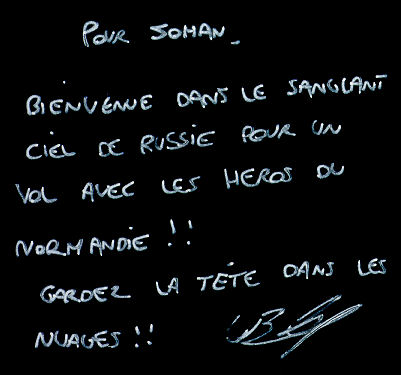 POUR JOHAN_
BIENVENUE DANS LE SANGLANT
CIEL DE RUSSIE POUR UN
VOL AVEC LES HEROS DU
NORMANDIE !!
GARDEZ LA TÊTE DANS LES
NUAGES !!